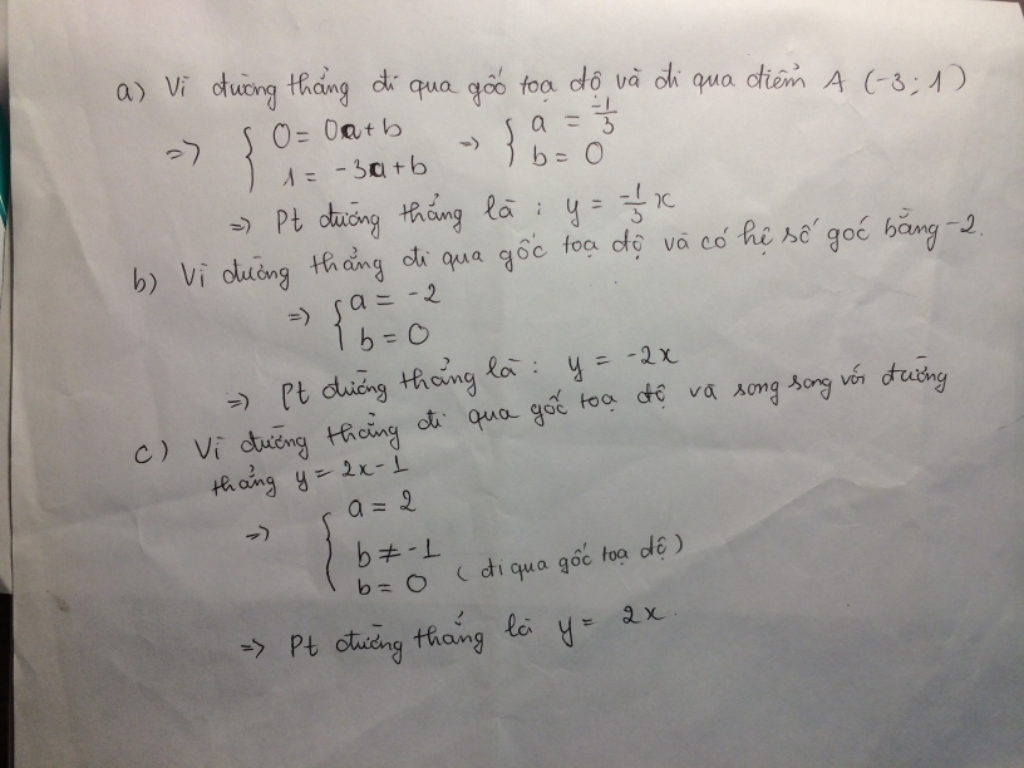 a) Vì đường thẳng đi qua gốc toạ độ và đi qua điểm A (-3; 1)
=> { 0 = 0a + b => { a = -1/3
1 = -3a + b b = 0
=> Pt đường thẳng là : y = -1/3 x
b) Vì đường thẳng đi qua gốc toạ độ và có hệ số góc bằng -2.
=> { a = -2
b = 0
=> Pt đường thẳng là : y = -2x
c) Vì đường thẳng đi qua gốc toạ độ và song song với đường
thẳng y = 2x - 1
=> { a = 2
b ≠ -1
b = 0 (đi qua gốc toạ độ)
=> Pt đường thẳng là y = 2x.